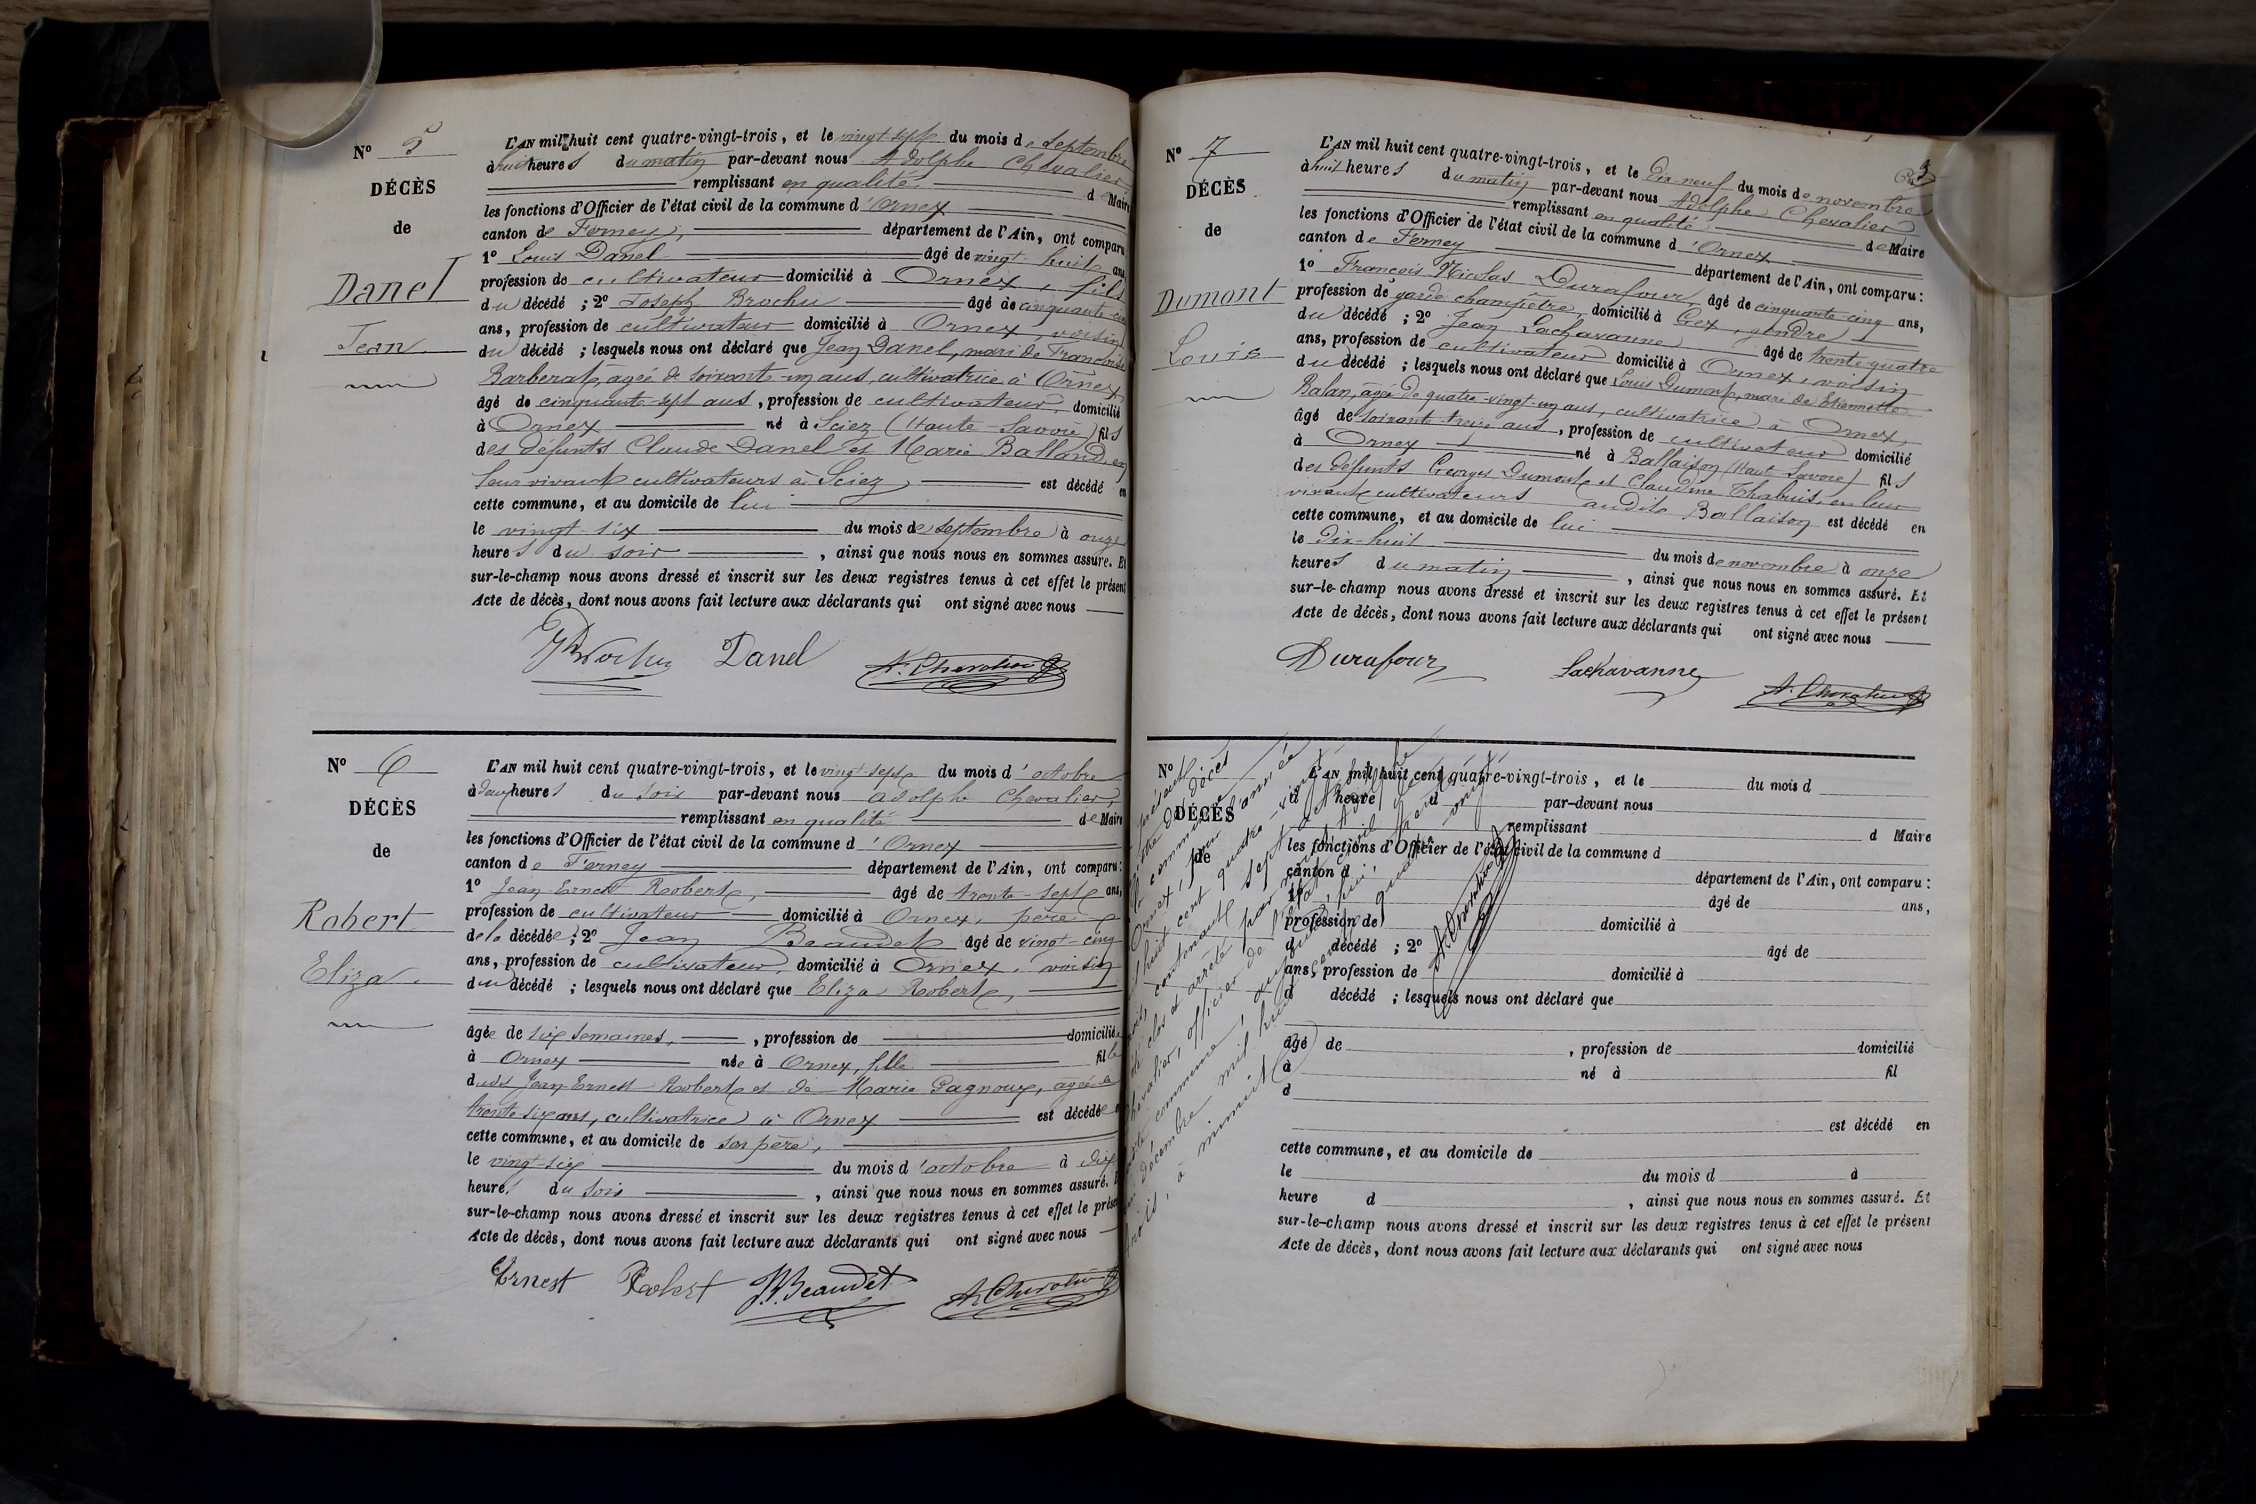 N° 5
DÉCÈS
de
Danel
Jean
L'AN mil huit cent quatre-vingt-trois, et le vingt-sept du mois de septembre
à huit heures du matin par-devant nous Adolphe Chevalier,
remplissant en qualité de Maire
les fonctions d'Officier de l'état civil de la commune d'Ornex
canton de Ferney, département de l'Ain, ont comparu
1° Louis Danel âgé de vingt-huit ans,
profession de cultivateur domicilié à Ornex, fils
du décédé ; 2° Joseph Brochu âgé de cinquante-cinq
ans, profession de cultivateur domicilié à Ornex, voisin
du décédé ; lesquels nous ont déclaré que Jean Danel, mari de Françoise
Barberat, agée de soixante-un ans, cultivatrice à Ornex
âgé de cinquante-sept ans, profession de cultivateur, domicilié
à Ornex né à Sciez (Haute-Savoie) fils
des défunts Claude Danel et Marie Balland, en
leur vivant cultivateurs à Sciez, est décédé en
cette commune, et au domicile de lui
le vingt-six du mois de septembre à onze
heures du soir, ainsi que nous nous en sommes assuré. Et
sur-le-champ nous avons dressé et inscrit sur les deux registres tenus à cet effet le présent
Acte de décès, dont nous avons fait lecture aux déclarants qui ont signé avec nous
Brochu Danel A. Chevalier
N° 6
DÉCÈS
de
Robert
Eliza
L'AN mil huit cent quatre-vingt-trois, et le vingt-sept du mois d'octobre
à deux heures du soir par-devant nous Adolphe Chevalier,
remplissant en qualité de Maire
les fonctions d'Officier de l'état civil de la commune d'Ornex
canton de Ferney département de l'Ain, ont comparu :
1° Jean Ernest Robert, âgé de trente-sept ans,
profession de cultivateur domicilié à Ornex, père
de la décédée ; 2° Jean Beaudet âgé de vingt-cinq
ans, profession de cultivateur, domicilié à Ornex, voisin
du décédé ; lesquels nous ont déclaré que Eliza Robert,
âgée de six semaines, profession de domiciliée
à Ornex née à Ornex, fille fille
dudit Jean-Ernest Robert et de Marie Gagnoux, agée de
trente-six ans, cultivatrice à Ornex est décédée en
cette commune, et au domicile de son père,
le vingt-six du mois d'octobre à dix
heures du soir, ainsi que nous nous en sommes assuré. E
sur-le-champ nous avons dressé et inscrit sur les deux registres tenus à cet effet le présen
Acte de décès, dont nous avons fait lecture aux déclarants qui ont signé avec nous
Ernest Robert J. Beaudet A. Chevalier
3
N° 7
DÉCÈS
de
Dumont
Louis
L'AN mil huit cent quatre-vingt-trois, et le dix-neuf du mois de novembre
à huit heures du matin par-devant nous Adolphe Chevalier
remplissant en qualité de Maire
les fonctions d'Officier de l'état civil de la commune d'Ornex
canton de Ferney département de l'Ain, ont comparu :
1° François Nicolas Durafour, âgé de cinquante-cinq ans,
profession de garde champêtre, domicilié à Gex, gendre
du décédé ; 2° Jean Lachavanne âgé de trente-quatre
ans, profession de cultivateur domicilié à Ornex, voisin
du décédé ; lesquels nous ont déclaré que Louis Dumont, mari de Etiennette
Balan, agée de quatre-vingt-un ans, cultivatrice à Ornex,
âgé de soixante-treize ans, profession de cultivateur domicilié
à Ornex né à Ballaison (Haute Savoie) fils
des défunts Georges Dumont et Claudine Thabuis, en leur
vivant cultivateurs audit Ballaison est décédé en
cette commune, et au domicile de lui
le dix-huit du mois de novembre à onze
heures du matin, ainsi que nous nous en sommes assuré. Et
sur-le-champ nous avons dressé et inscrit sur les deux registres tenus à cet effet le présent
Acte de décès, dont nous avons fait lecture aux déclarants qui ont signé avec nous
Durafour Lachavanne A. Chevalier
N°
DÉCÈS
de
L'AN mil huit cent quatre-vingt-trois, et le du mois d
à heure d par-devant nous
remplissant d Maire
les fonctions d'Officier de l'état civil de la commune d
canton d département de l'Ain, ont comparu :
1° âgé de ans,
profession de domicilié à
d décédé ; 2° âgé de
ans, profession de domicilié à
d décédé ; lesquels nous ont déclaré que
âgé de , profession de domicilié
à né à fil
d
est décédé en
cette commune, et au domicile de
le du mois d à
heure d , ainsi que nous nous en sommes assuré. Et
sur-le-champ nous avons dressé et inscrit sur les deux registres tenus à cet effet le présent
Acte de décès, dont nous avons fait lecture aux déclarants qui ont signé avec nous
décès
commune
Ornex, pour l'année
huit cent quatre-vingt
contenant sept actes
clos et arrêté par nous Adolphe
Chevalier, officier de l'état civil de
commune, aujourd'hui, trente-un
décembre mil huit cent quatre-vingt
trois, à minuit
A. Chevalier